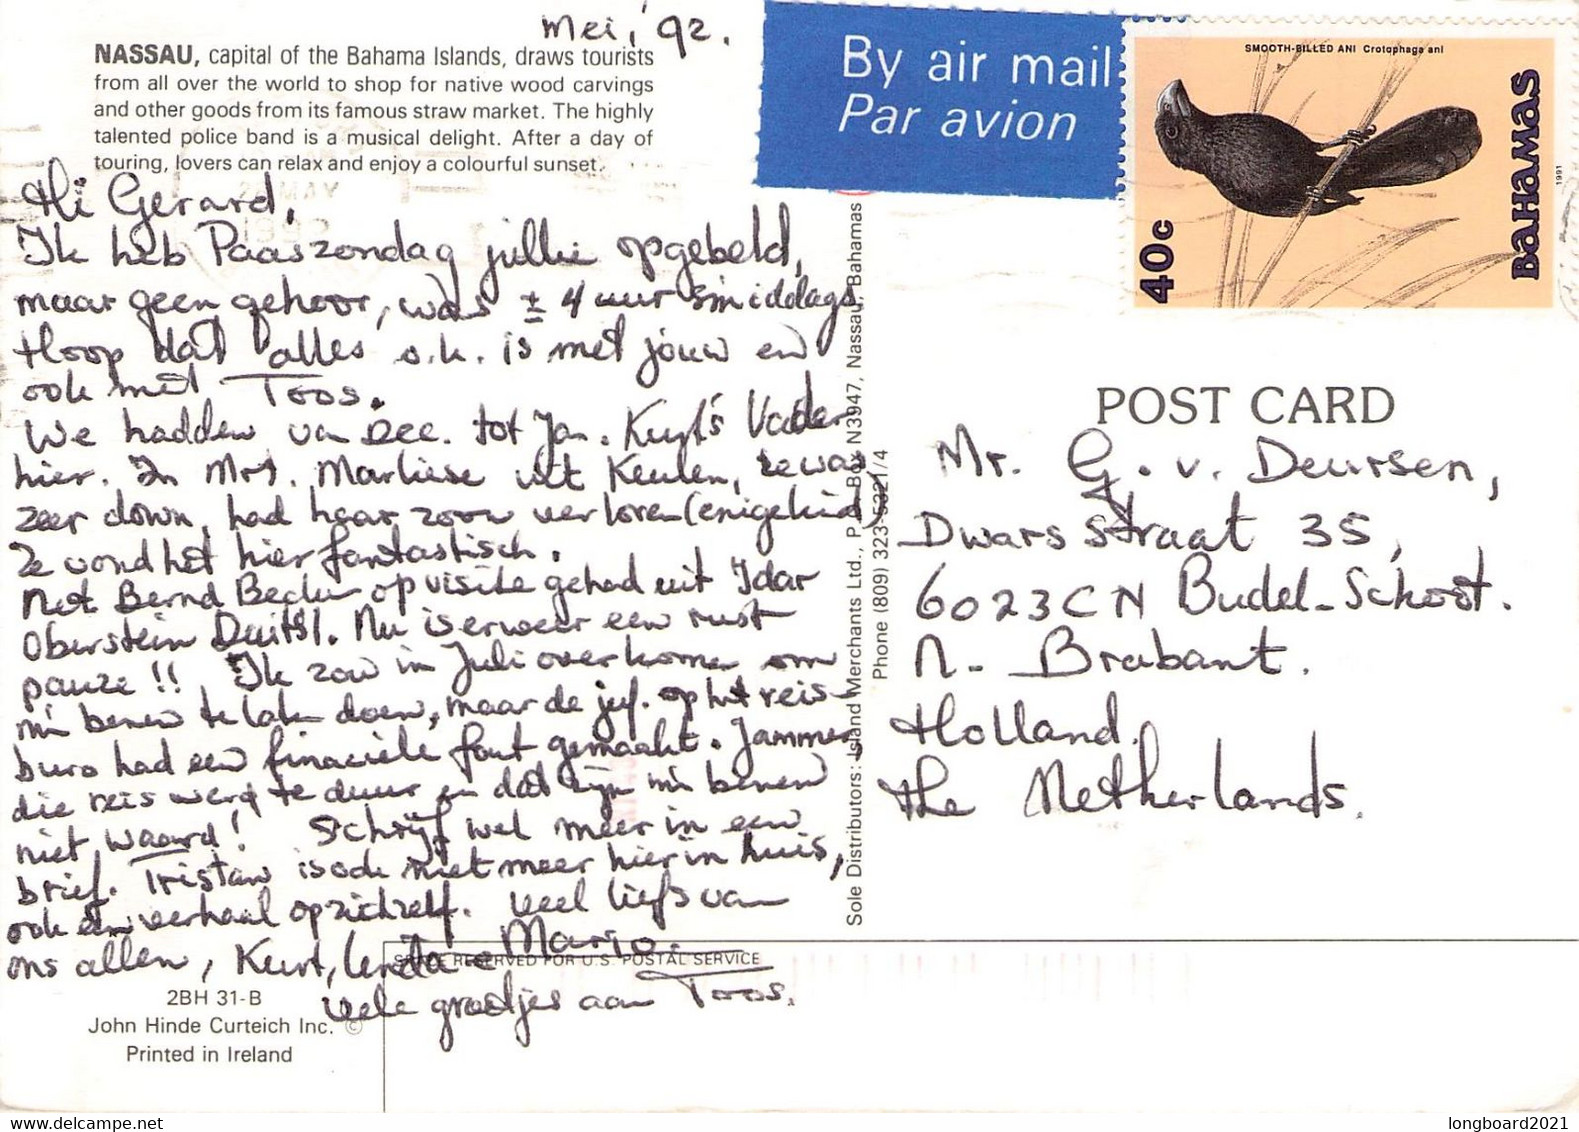 Mei, '92.
NASSAU, capital of the Bahama Islands, draws tourists
from all over the world to shop for native wood carvings
and other goods from its famous straw market. The highly
talented police band is a musical delight. After a day of
touring, lovers can relax and enjoy a colourful sunset.
Hi Gerard,
Ik heb Paaszondag jullie opgebeld,
maar geen gehoor, was ± 4 uur smiddags
Hoop dat alles o.k. is met jouw en
ook met Toos.
We hadden van Dec. tot Jan. Kurt's Vader
hier. In Mrt. Marliese uit Keulen, ze was
zeer down, had haar zoon verloren (enigekind)
Ze vond het hier fantastisch.
Net Bernd Becker op visite gehad uit Idar
Oberstein Duitsl. Nu is er weer een rust
pauze!! Ik zou in Juli overkomen om
mn benen te laten doen, maar de juf. op het reis-
buro had een financiele fout gemaakt. Jammer,
die reis werd te duur en dat zijn mn benen
niet waard! Schrijf wel meer in een
brief. Tristan is ook niet meer hier in huis,
ook een verhaal op zichzelf. Veel liefs van
ons allen, Kurt, Linda - Mario.
Vele groetjes aan Toos.
SPACE RESERVED FOR U.S. POSTAL SERVICE
2BH 31-B
John Hinde Curteich Inc. ©
Printed in Ireland
Sole Distributors: Island Merchants Ltd., P.O. Box N3947, Nassau, Bahamas
Phone (809) 323-5321/4
By air mail
Par avion
SMOOTH-BILLED ANI Crotophaga ani
40c
BAHAMAS
1991
POST CARD
Mr. G. v. Deursen,
Dwarsstraat 35,
6023CN Budel-Schoot.
N- Brabant.
Holland.
the Netherlands.
longboard2021